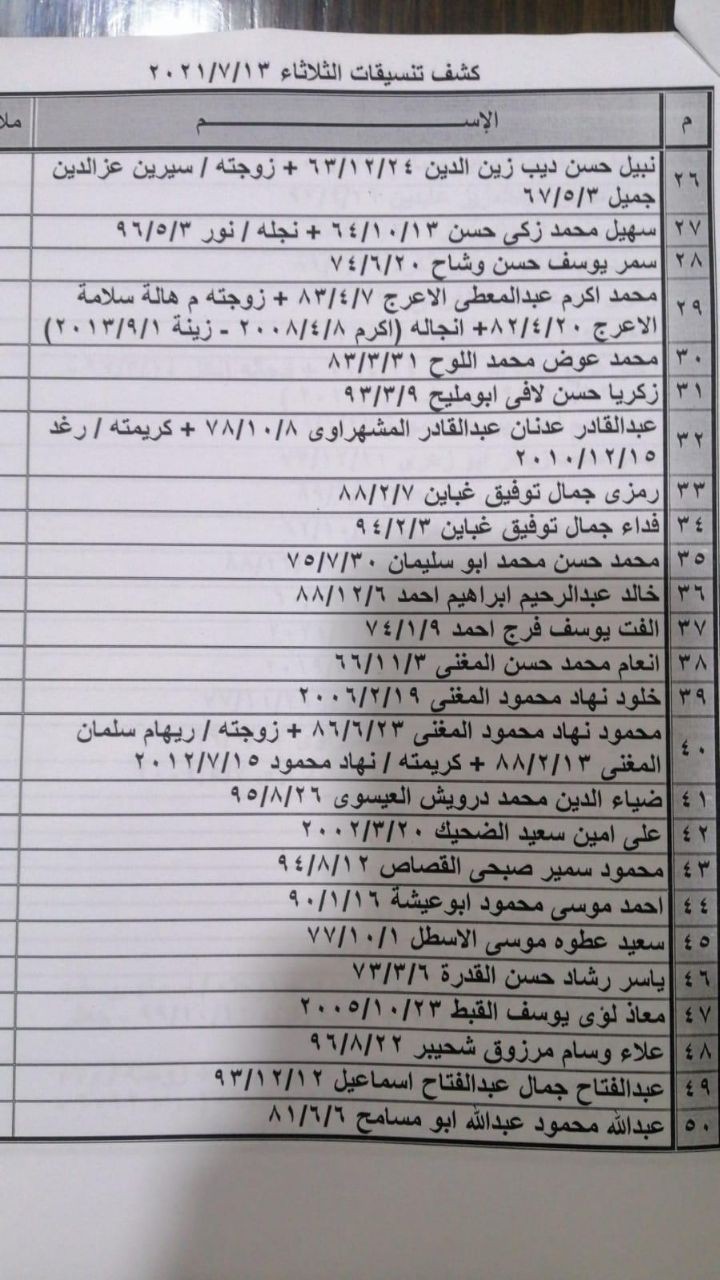 كشف تنسيقات الثلاثاء ٢٠٢١/٧/١٣
م الإســـــــــم ملا
٢٦ نبيل حسن ديب زين الدين ٦٣/١٢/٢٤ + زوجته / سيرين عزالدين
جميل ٦٧/٥/٣
٢٧ سهيل محمد زكى حسن ٦٤/١٠/١٣ + نجله / نور ٩٦/٥/٣
٢٨ سمر يوسف حسن وشاح ٧٤/٦/٢٠
٢٩ محمد اكرم عبدالمعطى الاعرج ٨٣/٤/٧ + زوجته م هالة سلامة
الاعرج ٨٢/٤/٢٠+ انجاله (اكرم ٢٠٠٨/٤/٨ - زينة ٢٠١٣/٩/١)
٣٠ محمد عوض محمد اللوح ٨٣/٣/٣١
٣١ زكريا حسن لافى ابومليح ٩٣/٣/٩
٣٢ عبدالقادر عدنان عبدالقادر المشهراوى ٧٨/١٠/٨ + كريمته / رغد
٢٠١٠/١٢/١٥
٣٣ رمزى جمال توفيق غباين ٨٨/٢/٧
٣٤ فداء جمال توفيق غباين ٩٤/٢/٣
٣٥ محمد حسن محمد ابو سليمان ٧٥/٧/٣٠
٣٦ خالد عبدالرحيم ابراهيم احمد ٨٨/١٢/٦
٣٧ الفت يوسف فرج احمد ٧٤/١/٩
٣٨ انعام محمد حسن المغنى ٦٦/١١/٣
٣٩ خلود نهاد محمود المغنى ٢٠٠٦/٢/١٩
٤٠ محمود نهاد محمود المغنى ٨٦/٦/٢٣ + زوجته / ريهام سلمان
المغنى ٨٨/٢/١٣ + كريمته / نهاد محمود ٢٠١٢/٧/١٥
٤١ ضياء الدين محمد درويش العيسوى ٩٥/٨/٢٦
٤٢ على امين سعيد الضحيك ٢٠٠٢/٣/٢٠
٤٣ محمود سمير صبحى القصاص ٩٤/٨/١٢
٤٤ احمد موسى محمود ابوعيشة ٩٠/١/١٦
٤٥ سعيد عطوه موسى الاسطل ٧٧/١٠/١
٤٦ ياسر رشاد حسن القدرة ٧٣/٣/٦
٤٧ معاذ لؤى يوسف القبط ٢٠٠٥/١٠/٢٣
٤٨ علاء وسام مرزوق شحيبر ٩٦/٨/٢٢
٤٩ عبدالفتاح جمال عبدالفتاح اسماعيل ٩٣/١٢/١٢
٥٠ عبدالله محمود عبدالله ابو مسامح ٨١/٦/٦